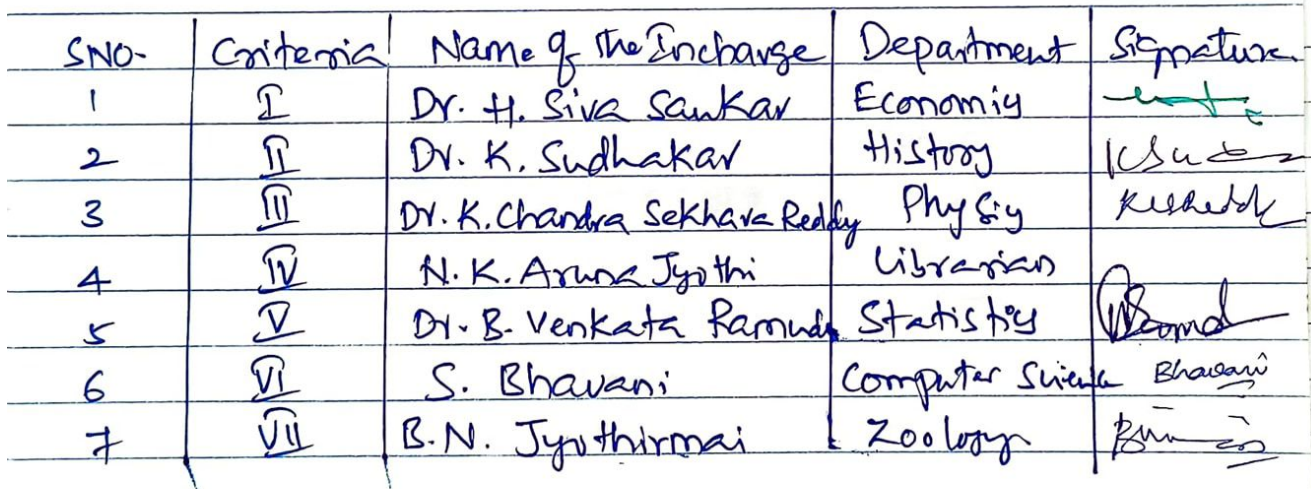 SNO- Criteria Name of the Incharge Department Signature
1 I Dr. H. Siva Sankar Economics
2 II Dr. K. Sudhakar History
3 III Dr. K. Chandra Sekhara Reddy Physics
4 IV N. K. Aruna Jyothi Librarian
5 V Dr. B. Venkata Ramudu Statistics
6 VI S. Bhavani Computer Science Bhavani
7 VII B.N. Jyothirmai Zoology